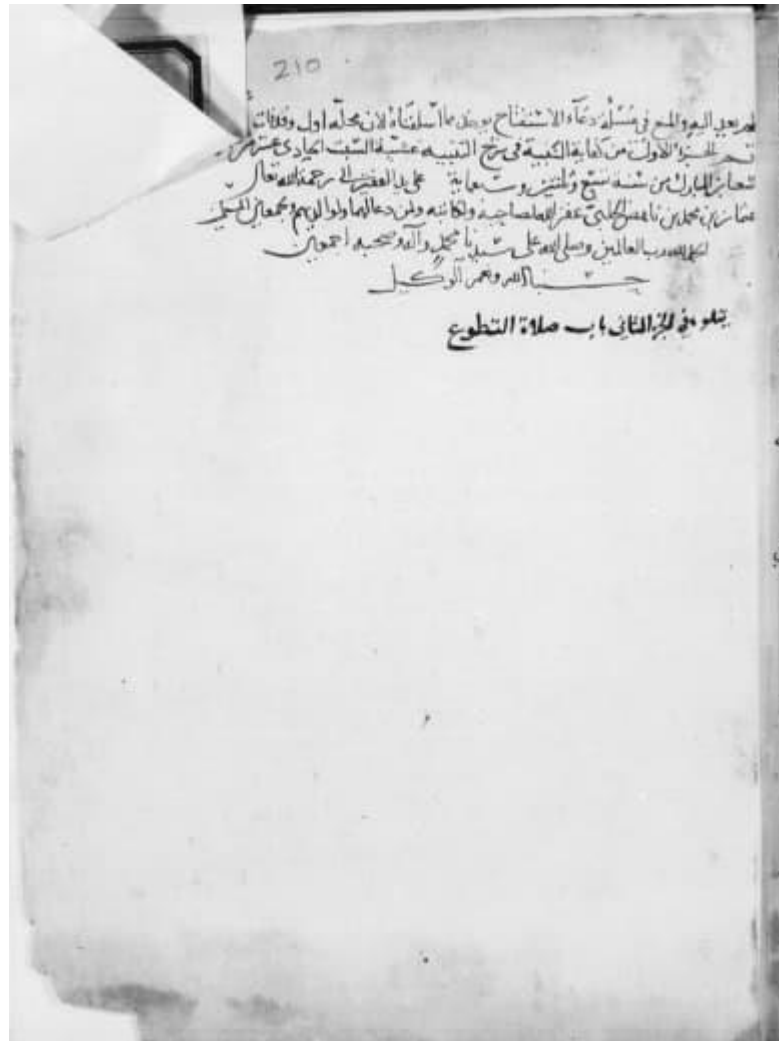 210
لم يعد اليه والمنع في مسئلة دعاء الاستفتاح يوخذ مما اسلفناه لان محله اول وقد فات
تم الجزء الاول من كفاية النبيه في شرح التنبيه عشية السبت الحادي عشر من
شعبان المبارك من سنة سبع وثلثين وسبعماية على يد الفقير الى رحمة الله تعالى
عثمان بن محمد بن الحلبي غفر الله لصاحبه ولكاتبه ولمن دعا لهما ولوالديهم ولجميع المسلمين
الحمد لله رب العالمين وصلى الله على سيدنا محمد وآله وصحبه اجمعين
حسبنا الله ونعم الوكيل
يتلوه في الجزء الثاني باب صلاة التطوع